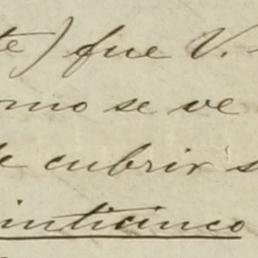 te) fue V.
omo se ve
de cubrir s
inticinco